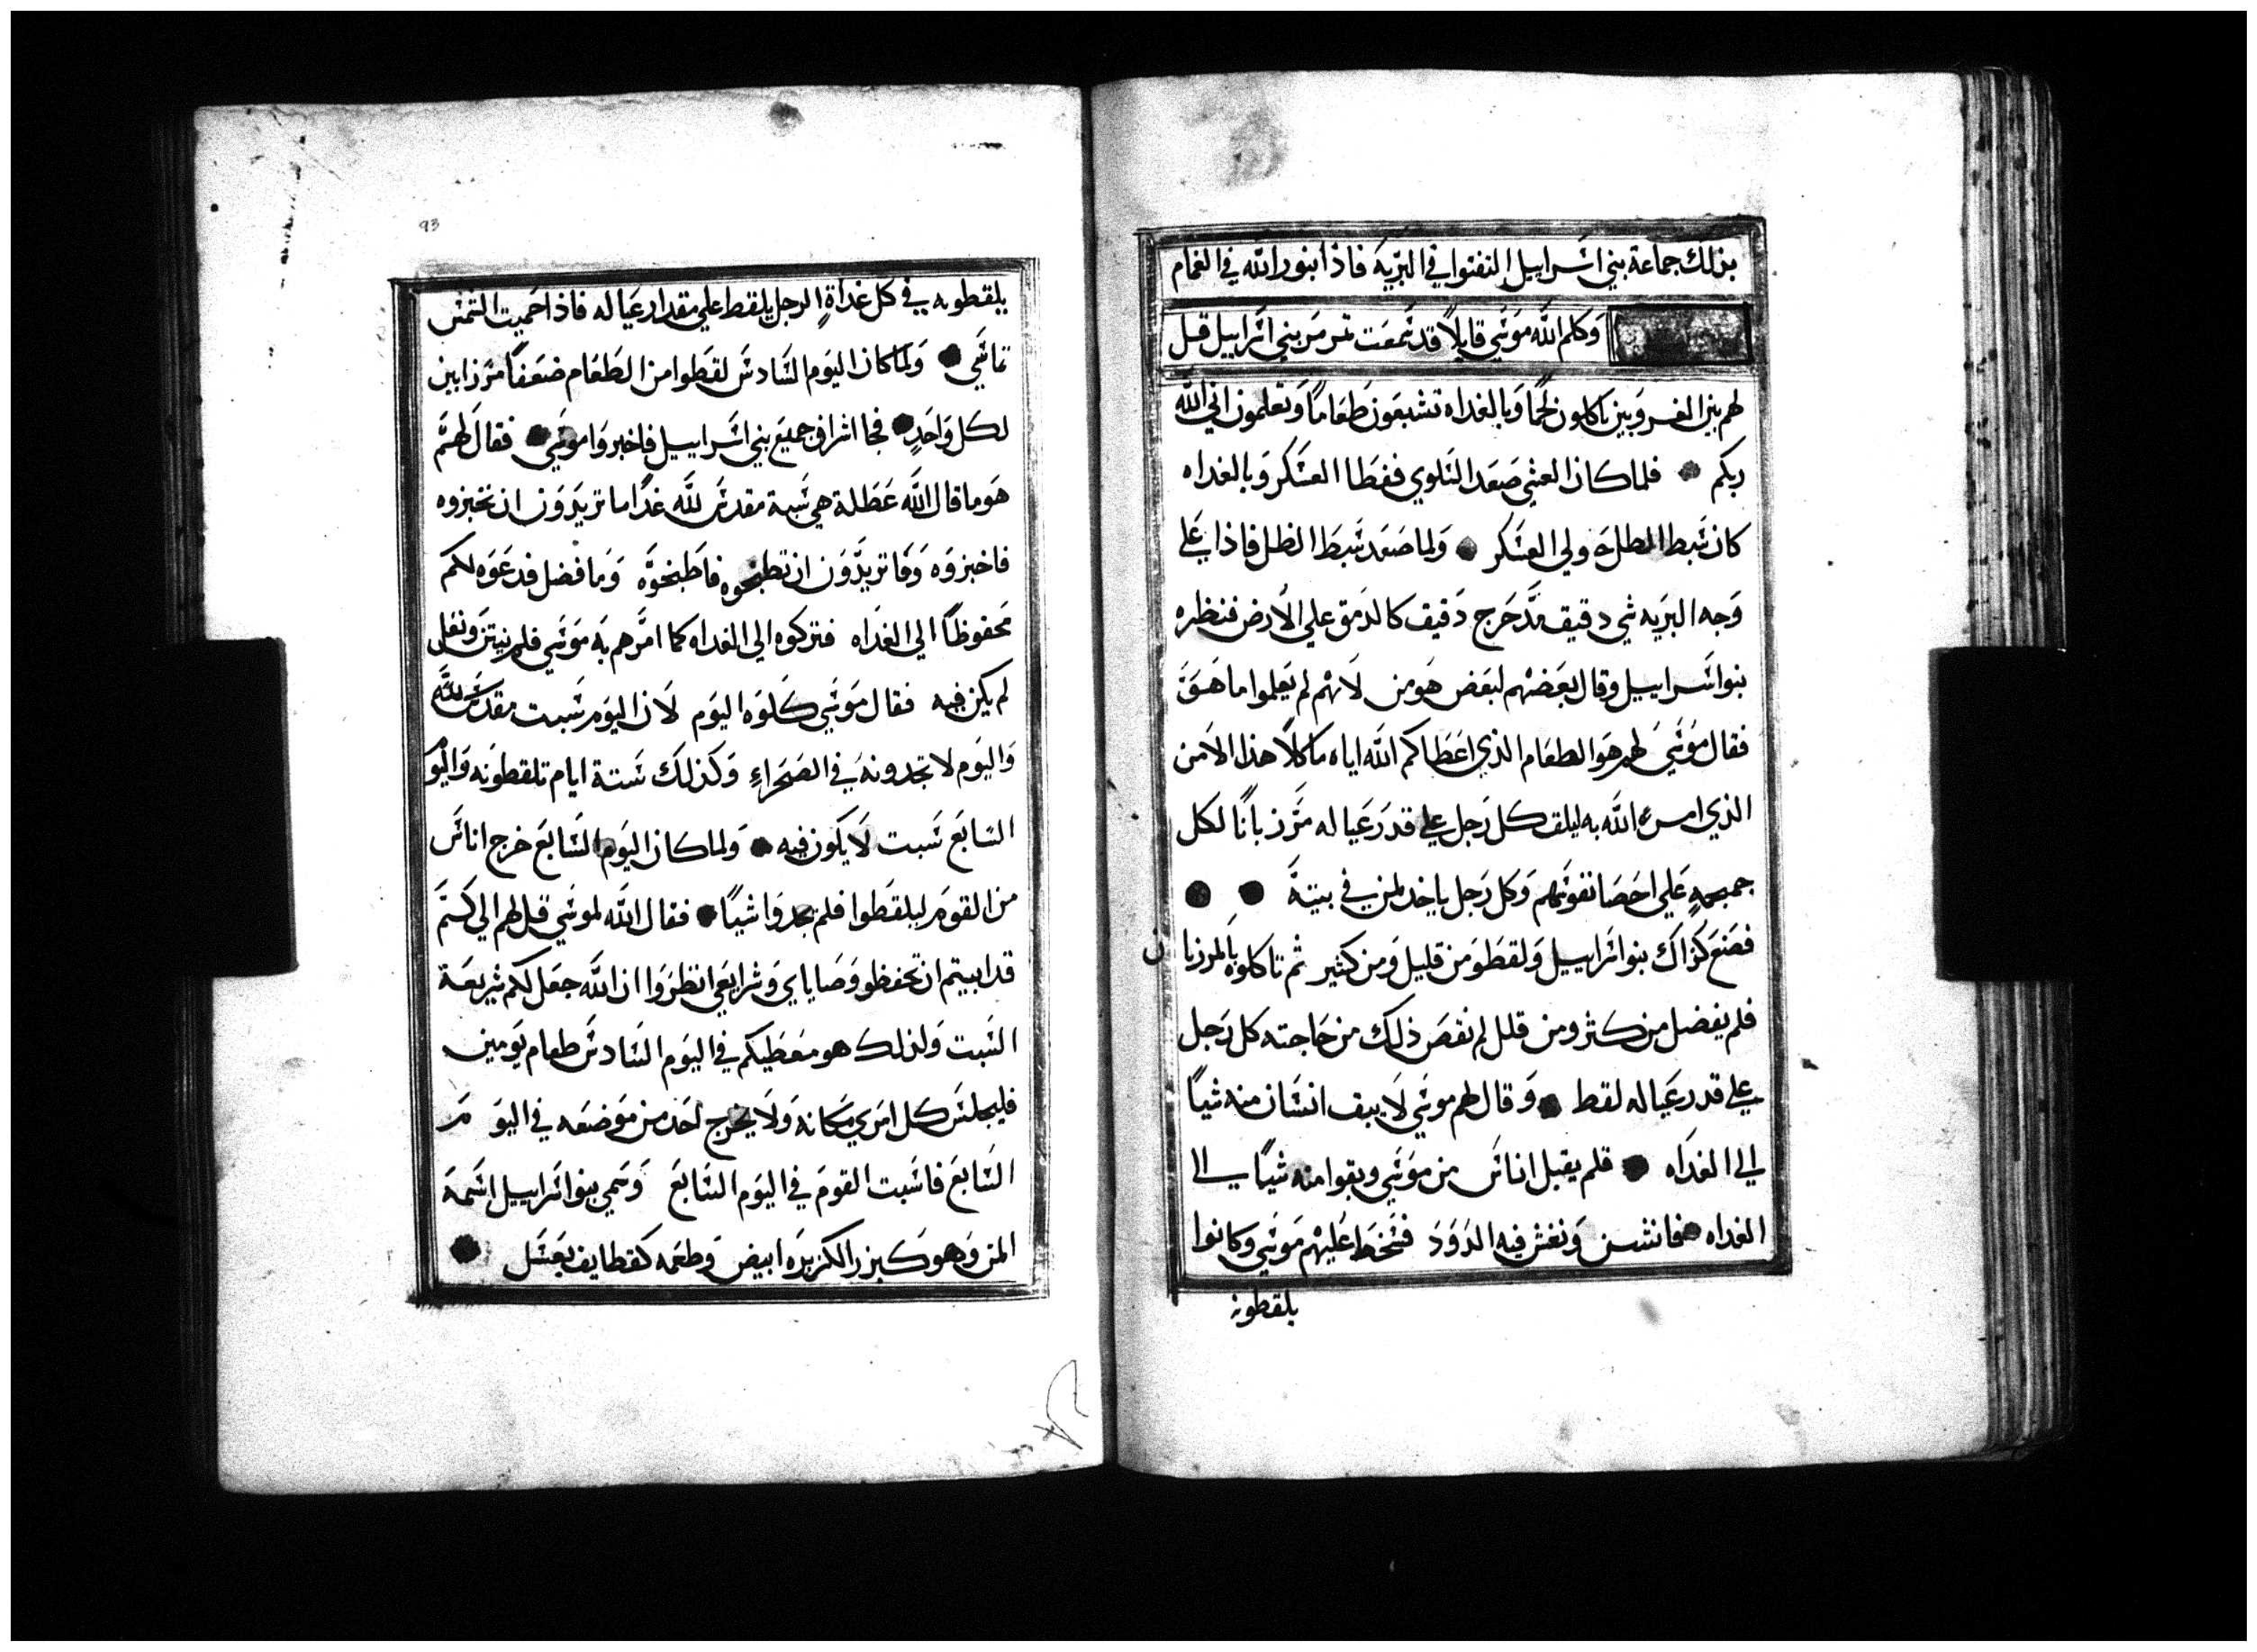 بذلك جماعة بني اسراييل التفتوا في البريه فاذا بنور الله في الغمام
وكلم الله موسي قايلاً قد سمعت تمرمر بني اسراييل قل
لهم بين الغروبين تاكلون لحمًا وبالغداه تشبعون طعامًا وتعلمون اني الله
ربكم فلما كان العشي صعد السلوي فغطا العسكر وبالغداه
كان سبط الطل حولي العسكر ولما صعد سبط الطل فاذا علي
وجه البريه شي دقيق مدحرج دقيق كالدمق علي الارض فنظره
بنوا اسراييل وقال بعضهم لبعض هو من لانهم لم يعلموا ما هو
فقال موسي لهم هو الطعام الذي اعطاكم الله اياه ماكلاً هذا الامن
الذي امر الله به ليلقـ كل رجل علي قدر عياله مرزبانًا لكل
جمجمه علي احصا نفوسهم وكل رجل ياخد لمن في بيته
فصنع كذاك بنوا اسراييل ولقطو من قليل ومن كثير ثم تاكلوه بالمرزبا ن
فلم يفضل من كثر ومن قلل لم نقص ذلك من حاجته كل رجل
علي قدر عياله لقط وقال لهم موسي لا يبق انسان منه شيًا
الي الغداه فلم يقبل اناس من موسي وبقوا منه شيًا الي
الغداه فانتن ونغش فيه الدود فسخط عليهم موسي وكانوا
يلقطونه
93
يلقطونه في كل غداةٍ الرجل يلقط علي مقدار عياله فاذا حميت الشمس
تماسي ولما كان اليوم السادس لقطوا من الطعام ضعفًا مرزابين
لكل واحدٍ فجا اشراف جميع بني اسراييل فاخبروا موسي فقال لهم
هو ما قال الله عطلة هي سبة مقدس لله غدًا ما تريدون ان تخبزوه
فاخبزوه وما تريدون ان تطبخوه فاطبخوه وما فضل فدعوه لكم
محفوظًا الي الغداه فتركوه الي الغداه كما امرهم به موسي فلم ينتن ونغل
لم يكن فيه فقال موسي كلوه اليوم لان اليوم سبت مقدس لله
واليوم لا تجدونه في الصحراءِ وكذلك ستة ايام تلقطونه واليو
السابع سبت لا يكون فيه ولما كان اليوم السابع خرج اناس
من القوم ليلقطوا فلم يجدوا شيًا فقال الله لموسي قل لهم الي كم
قد ابيتم ان تحفظو وصاياي وشرايعي انظروا ان الله جعل لكم شريعة
السبت ولذلك هو معطيكم في اليوم السادس طعام يومين
فليجلس كل امري مكانه ولا يخرج احد من موضعه في اليو م
السابع فاسبت القوم في اليوم السابع وسمي بنوا اسراييل اسمه
المن وهو كبزر الكزبره ابيض وطعمه كقطايف بعسل